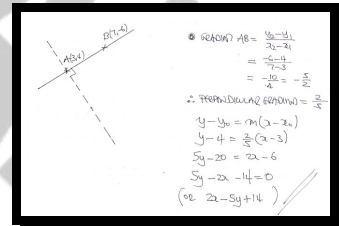 B(7,-6)
A(3,4)
GRADIENT AB = y₂-y₁ / x₂-x₁
= -6-4 / 7-3
= -10/4 = -5/2
∴ PERPENDICULAR GRADIENT = 2/5
y-y₀ = m(x-x₀)
y-4 = 2/5(x-3)
5y-20 = 2x-6
5y-2x-14=0
(or 2x-5y+14)